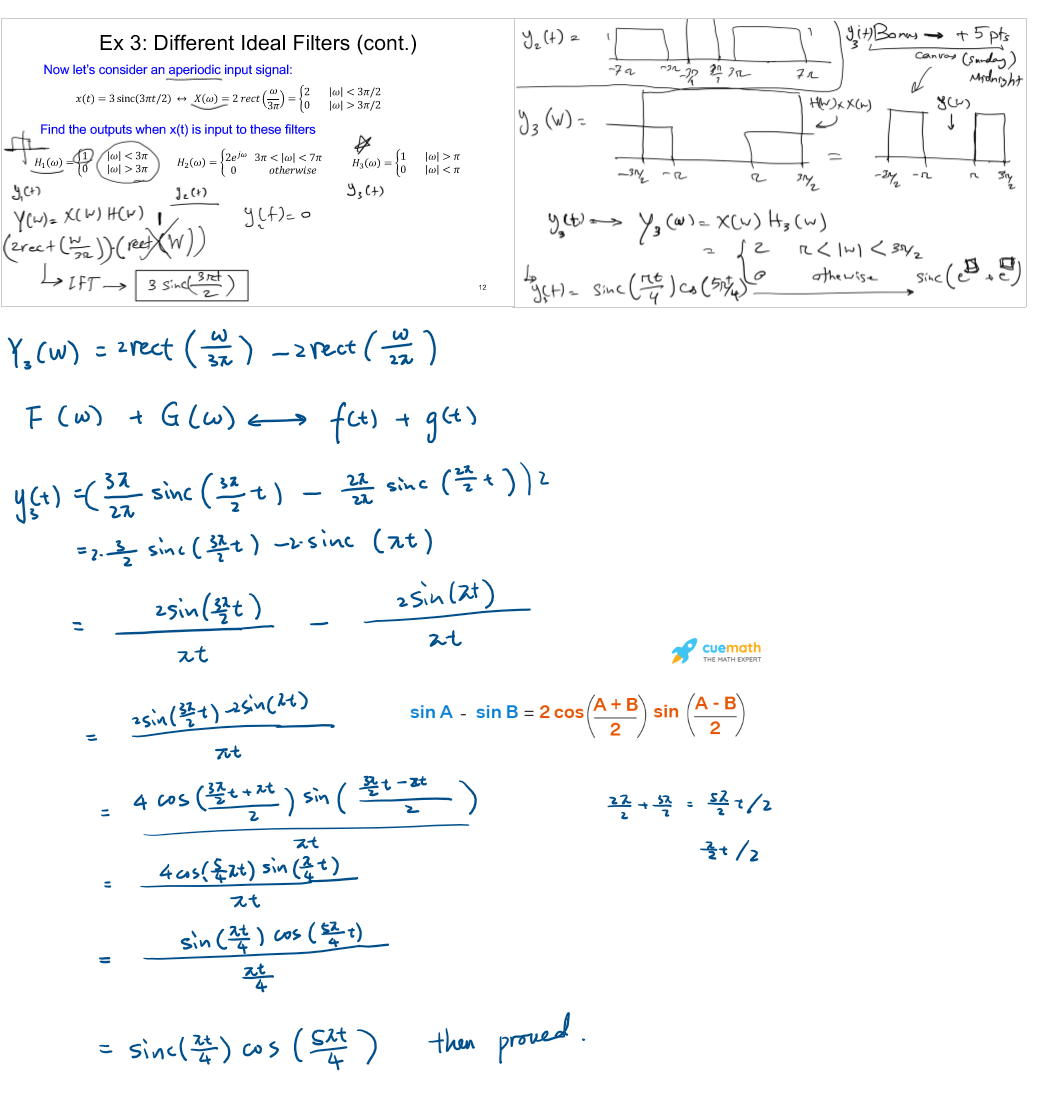 Ex 3: Different Ideal Filters (cont.)
Now let's consider an aperiodic input signal:
x(t) = 3 sinc(3πt/2) ↔ X(ω) = 2 rect (ω/3π) = {2 |ω| < 3π/2
0 |ω| > 3π/2
Find the outputs when x(t) is input to these filters
H₁(ω) = {1 |ω| < 3π
0 |ω| > 3π
H₂(ω) = {2e^{jω} 3π < |ω| < 7π
0 otherwise
H₃(ω) = {1 |ω| > π
0 |ω| < π
y₁(t)
y₂(t)
y₃(t)
Y(ω) = X(ω) H(ω)
y₂(t) = 0
(2rect(ω/3π))·(rect X(ω))
↳ IFT → 3 sinc(3πt/2)
12
y₂(t) =
1
1
-7π -3π -3π/2 3π 7π
y₃(t) Bonus → + 5 pts
Canvas (Sunday)
Midnight
Y₃(ω) =
H(ω) x X(ω)
Y(ω)
=
-3π/2 -π π 3π/2
-3π/2 -π π 3π/2
y₃(t) ⟷ Y₃(ω) = X(ω) H₃(ω)
= {2 π < |ω| < 3π/2
0 otherwise
↳ y₃(t) = sinc(πt/4) cos(5πt/4) → sinc(e + e)
Y₃(ω) = 2rect(ω/3π) - 2rect(ω/2π)
F(ω) + G(ω) ⟷ f(t) + g(t)
y₃(t) = (3π/2π sinc(3π/2 t) - 2π/2π sinc(2π/2 t)) 2
= 2·3/2 sinc(3π/2 t) - 2·sinc(πt)
= 2sin(3π/2 t)/πt - 2sin(πt)/πt
cuemath
THE MATH EXPERT
= 2sin(3π/2 t) - 2sin(πt)/πt
sin A - sin B = 2 cos(A + B/2) sin (A - B/2)
= 4 cos(3π/2 t + πt/2) sin(3π/2 t - πt/2)/πt
2π/2 + 3π/2 = 5π/2 t/2
π/2 t/2
= 4cos(5/4 πt) sin(π/4 t)/πt
= sin(πt/4) cos(5π/4 t)/πt/4
= sinc(πt/4) cos(5πt/4) then proved.